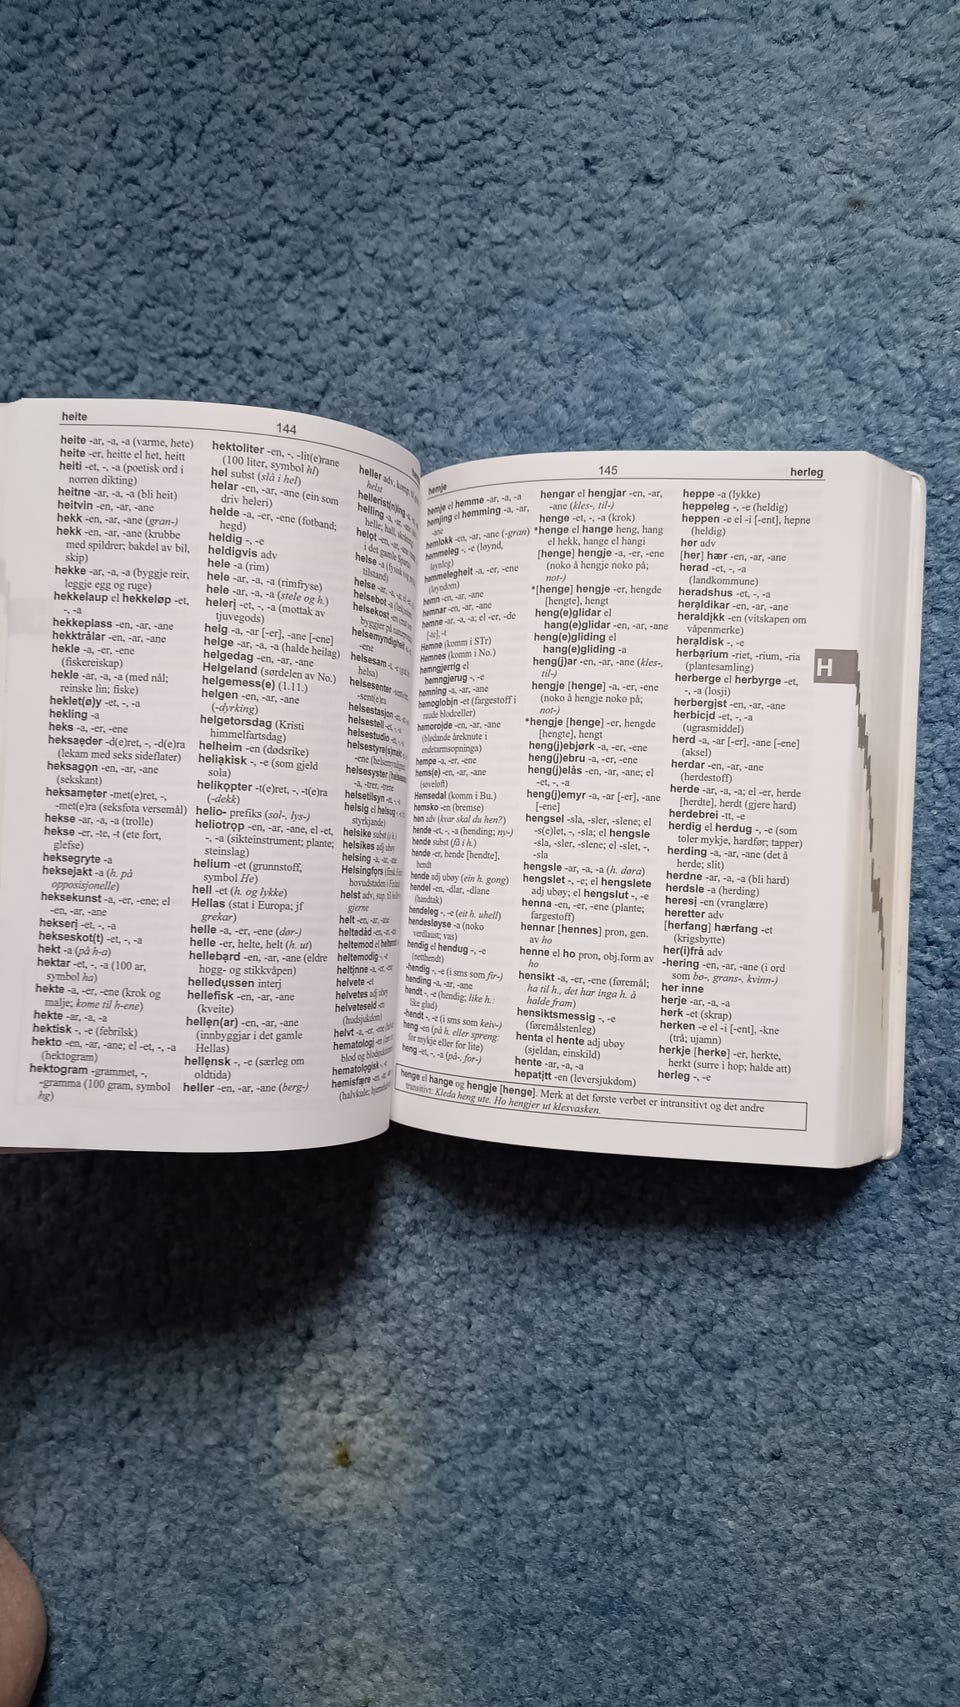 heite
144
heite -ar, -a, -a (varme, hete)
heite -er, heitte el het, heitt
heiti -et, -, -a (poetisk ord i
norrøn dikting)
heitne -ar, -a, -a (bli heit)
heitvin -en, -ar, -ane
hekk -en, -ar, -ane (gran-)
hekk -en, -ar, -ane (krubbe
med spildrer; bakdel av bil,
skip)
hekke -ar, -a, -a (byggje reir,
leggje egg og ruge)
hekkelaup el hekkeløp -et,
-, -a
hekkeplass -en, -ar, -ane
hekktrålar -en, -ar, -ane
hekle -a, -er, -ene
(fiskereiskap)
hekle -ar, -a, -a (med nål;
reinske lin; fiske)
heklet(ø)y -et, -, -a
hekling -a
heks -a, -er, -ene
heksaẹder -d(e)ret, -, -d(e)ra
(lekam med seks sideflater)
heksagọn -en, -ar, -ane
(sekskant)
heksamẹter -met(e)ret, -,
-met(e)ra (seksfota versemål)
hekse -ar, -a, -a (trolle)
hekse -er, -te, -t (ete fort,
glefse)
heksegryte -a
heksejakt -a (h. på
opposisjonelle)
heksekunst -a, -er, -ene; el
-en, -ar, -ane
hekserị -et, -, -a
hekseskot(t) -et, -, -a
hekt -a (på h-a)
hektar -et, -, -a (100 ar,
symbol ha)
hekte -a, -er, -ene (krok og
malje; kome til h-ene)
hekte -ar, -a, -a
hektisk -, -e (febrilsk)
hekto -en, -ar, -ane; el -et, -, -a
(hektogram)
hektogram -grammet, -,
-gramma (100 gram, symbol
hg)
hektoliter -en, -, -lit(e)rane
(100 liter, symbol hl)
hel subst (slå i hel)
helar -en, -ar, -ane (ein som
driv heleri)
helde -a, -er, -ene (fotband;
hegd)
heldig -, -e
heldigvis adv
hele -a (rim)
hele -ar, -a, -a (rimfryse)
hele -ar, -a, -a (stele og h.)
helerị -et, -, -a (mottak av
tjuvegods)
helg -a, -ar [-er], -ane [-ene]
helge -ar, -a, -a (halde heilag)
helgedag -en, -ar, -ane
Helgeland (sørdelen av No.)
helgemess(e) (1.11.)
helgen -en, -ar, -ane
(-dyrking)
helgetorsdag (Kristi
himmelfartsdag)
helheim -en (dødsrike)
heliạkisk -, -e (som gjeld
sola)
helikọpter -t(e)ret, -, -t(e)ra
(-dekk)
helio- prefiks (sol-, lys-)
heliotrọp -en, -ar, -ane, el -et,
-, -a (sikteinstrument; plante;
steinslag)
helium -et (grunnstoff,
symbol He)
hell -et (h. og lykke)
Hellas (stat i Europa; jf
grekar)
helle -a, -er, -ene (dør-)
helle -er, helte, helt (h. ut)
hellebạrd -en, -ar, -ane (eldre
hogg- og stikkvåpen)
helledụssen interj
hellefisk -en, -ar, -ane
(kveite)
hellẹn(ar) -en, -ar, -ane
(innbyggjar i det gamle
Hellas)
hellẹnsk -, -e (særleg om
oldtida)
heller -en, -ar, -ane (berg-)
heller adv,
helst
helling -a,
helle; hall,
helọt -en, -ar,
i det gamle
helse -a
tilstand)
helse -ar, -a,
helsebot -a
helsekost -en
helsemyndigheit
-ene
helsesam -, -e
helsa)
helsesenter
-sent(e)ra
helsestasjon
helsestell -et, -,
helsestudio -et, -,
-ene
helsesyster
-a,
helsetilsyn -et, -,
helsig el helsug
styrkjande)
helsike subst
helsikes adj ubøy
helsing -a, -ar, -ane
Helsingfors
hovudstaden i Finland
helst adv, sup. til
gjerne
helt -en, -ar, -ane
heltedåd -en, -ar
heltemod el
heltemodig -, -e
heltinne -a,
helvete -et
helvetes adj ubøy
helveteseld -en
(hudsjukdom)
helvt -a, -er, -ene
hematologị -en
blod og blodsjukdommar)
hematolọgisk -, -e
hemisfære -en, -ar,
(halvkule;
hemje
145
herleg
hemje el hemme -ar, -a, -a
hemjing el hemming -a, -ar,
-ane
hemlokk -en, -ar, -ane (-gran)
hemmeleg -, -e (løynd,
løynleg)
hemmelegheit -a, -er, -ene
(løyndom)
hemn -en, -ar, -ane
hemnar -en, -ar, -ane
hemne -ar, -a, -a; el -er, -de
[-te], -t
Hemne (komm i STr)
Hemnes (komm i No.)
hemngjerrig el
hemngjerug -, -e
hemning -a, -ar, -ane
hemoglobịn -et (fargestoff i
raude blodceller)
hemoroịde -en, -ar, -ane
(blødande åreknute i
endetarmsopninga)
hempe -a, -er, -ene
hems(e) -en, -ar, -ane
(soveloft)
Hemsedal (komm i Bu.)
hemsko -en (bremse)
hen adv (kvar skal du hen?)
hende -et, -, -a (hending; ny-)
hende subst (få i h.)
hende -er, hende [hendte],
hendt
hende adj ubøy (ein h. gong)
hendel -en, -dlar, -dlane
(handtak)
hendeleg -, -e (eit h. uhell)
hendesløyse -a (noko
verdlaust; vas)
hendig el hendug -, -e
(netthendt)
-hendig -, -e (i sms som fir-)
hending -a, -ar, -ane
hendt -, -e (hendig; like h.:
like glad)
-hendt -, -e (i sms som keiv-)
heng -en (på h. eller spreng:
for mykje eller for lite)
heng -et, -, -a (på-, for-)
hengar el hengjar -en, -ar,
-ane (kles-, til-)
henge -et, -, -a (krok)
*henge el hange heng, hang
el hekk, hange el hangi
[henge] hengje -a, -er, -ene
(noko å hengje noko på;
not-)
*[henge] hengje -er, hengde
[hengte], hengt
heng(e)glidar el
hang(e)glidar -en, -ar, -ane
heng(e)gliding el
hang(e)gliding -a
heng(j)ar -en, -ar, -ane (kles-,
til-)
hengje [henge] -a, -er, -ene
(noko å hengje noko på;
not-)
*hengje [henge] -er, hengde
[hengte], hengt
heng(j)ebjørk -a, -er, -ene
heng(j)ebru -a, -er, -ene
heng(j)elås -en, -ar, -ane; el
-et, -, -a
heng(j)emyr -a, -ar [-er], -ane
[-ene]
hengsel -sla, -sler, -slene; el
-s(e)let, -, -sla; el hengsle
-sla, -sler, -slene; el -slet, -,
-sla
hengsle -ar, -a, -a (h. døra)
hengslet -, -e; el hengslete
adj ubøy; el hengslut -, -e
henna -en, -er, -ene (plante;
fargestoff)
hennar [hennes] pron, gen.
av ho
henne el ho pron, obj.form av
ho
hensikt -a, -er, -ene (føremål;
ha til h., det har inga h. å
halde fram)
hensiktsmessig -, -e
(føremålstenleg)
henta el hente adj ubøy
(sjeldan, einskild)
hente -ar, -a, -a
hepatịtt -en (leversjukdom)
heppe -a (lykke)
heppeleg -, -e (heldig)
heppen -e el -i [-ent], hepne
(heldig)
her adv
[her] hær -en, -ar, -ane
herad -et, -, -a
(landkommune)
heradshus -et, -, -a
herạldikar -en, -ar, -ane
heraldịkk -en (vitskapen om
våpenmerke)
herạldisk -, -e
herbạrium -riet, -rium, -ria
(plantesamling)
herberge el herbyrge -et,
-, -a (losji)
herbergịst -en, -ar, -ane
herbicịd -et, -, -a
(ugrasmiddel)
herd -a, -ar [-er], -ane [-ene]
(aksel)
herdar -en, -ar, -ane
(herdestoff)
herde -ar, -a, -a; el -er, herde
[herdte], herdt (gjere hard)
herdebrei -tt, -e
herdig el herdug -, -e (som
toler mykje, hardfør; tapper)
herding -a, -ar, -ane (det å
herde; slit)
herdne -ar, -a, -a (bli hard)
herdsle -a (herding)
heresị -en (vranglære)
heretter adv
[herfang] hærfang -et
(krigsbytte)
her(i)frå adv
-hering -en, -ar, -ane (i ord
som bo-, grans-, kvinn-)
her inne
herje -ar, -a, -a
herk -et (skrap)
herken -e el -i [-ent], -kne
(trå; ujamn)
herkje [herke] -er, herkte,
herkt (surre i hop; halde att)
herleg -, -e
H
henge el hange og hengje [henge]. Merk at det første verbet er intransitivt og det andre
transitivt: Kleda heng ute. Ho hengjer ut klesvasken.